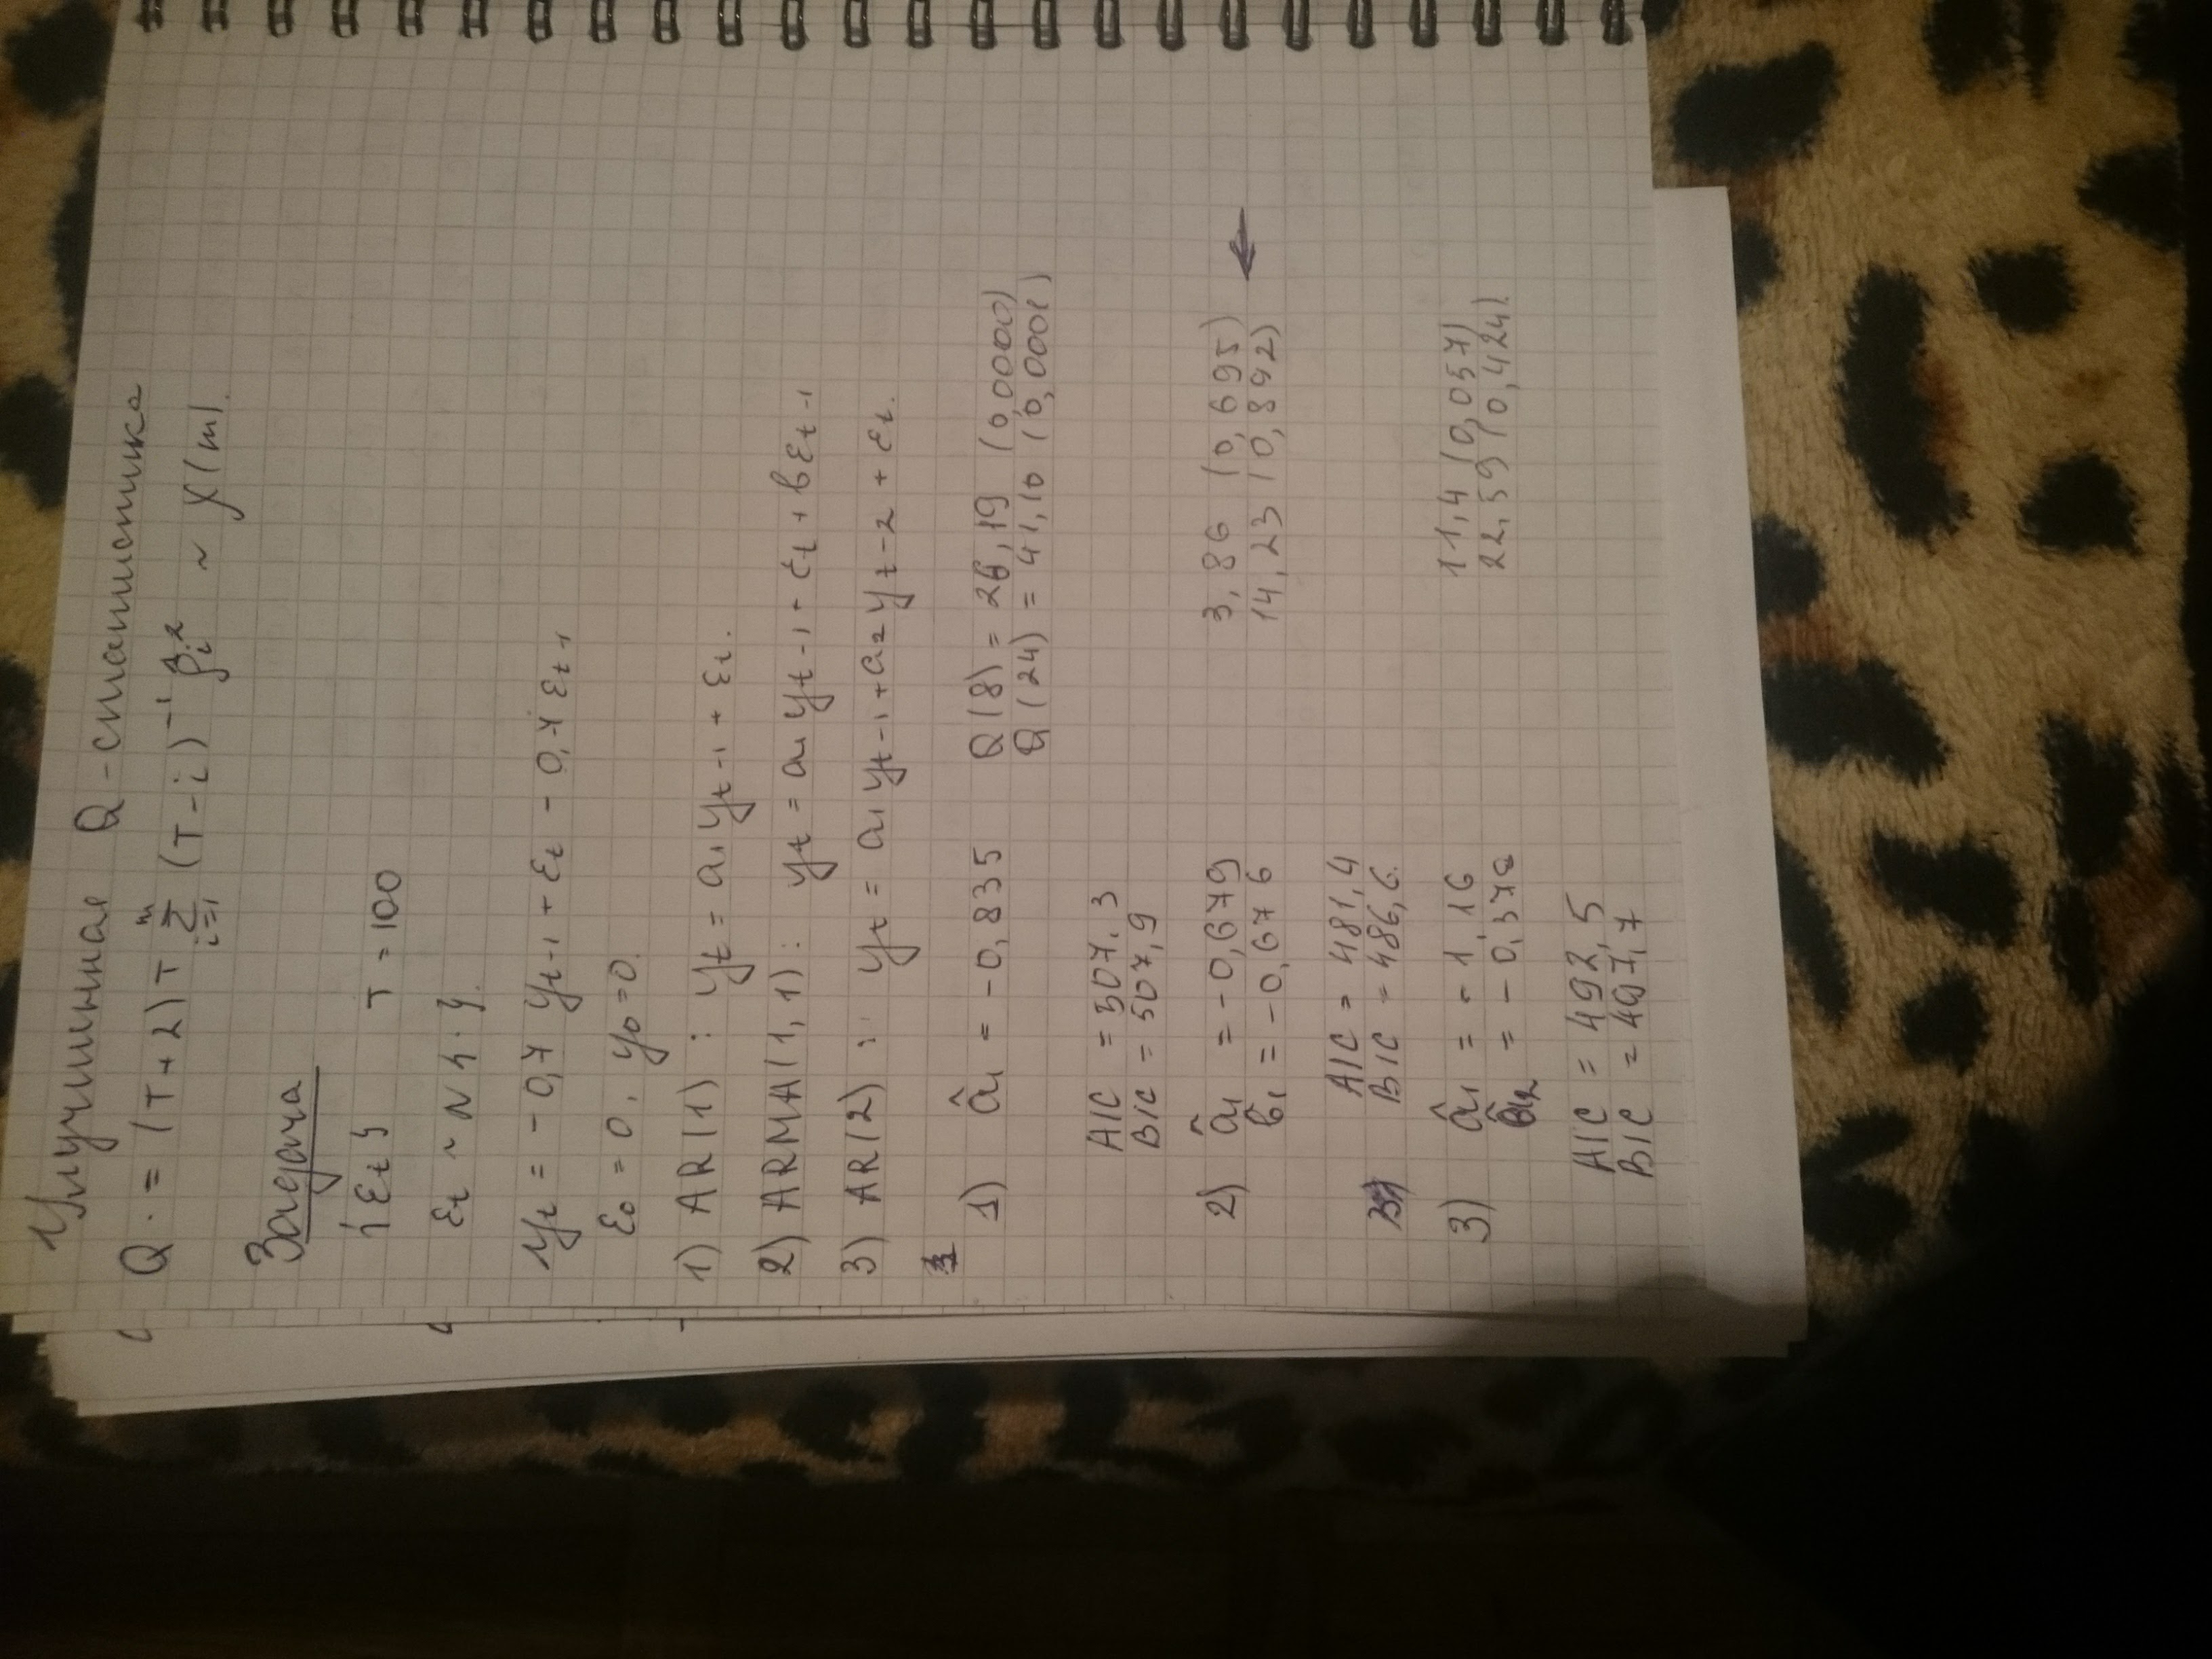 Улучшинная Q-статистика
Q· = (T+2)T Σ (T-i)⁻¹ ρ̂ᵢ² ~ χ(m).
m
i=1
Задача
{εt} T = 100
εt ~ N(·).
yt = -0,7 yt-1 + εt - 0,7 εt-1
ε0 = 0, y0 = 0.
1) AR(1): yt = a1 yt-1 + εt.
2) ARMA(1,1): yt = a1 yt-1 + εt + bεt-1
3) AR(2): yt = a1 yt-1 + a2 yt-2 + εt.
1) â1 = -0,835 Q(8) = 26,19 (0,0000)
Q(24) = 41,10 (0,0001)
AIC = 507,3
BIC = 507,9
2) â1 = -0,679 3,86 (0,695) ←
b̂1 = -0,676 14,23 (0,892)
AIC = 481,4
BIC = 486,6.
3) â1 = -1,16 11,4 (0,057)
â2 = -0,378 22,59 (0,424).
AIC = 492,5
BIC = 497,7